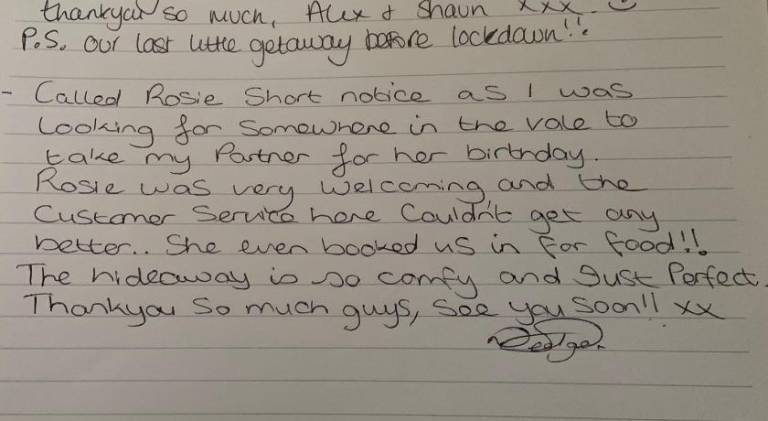 thankyou so much, Alex & Shaun xxx.
P.S. our last little getaway before lockdown!!
- Called Rosie Short notice as I was
Looking for Somewhere in the vale to
take my Partner for her birthday.
Rosie was very Welcoming and the
Customer Service here Couldn't get any
better.. She even booked us in for food!!
The hideaway is so comfy and Just Perfect.
Thankyou So much guys, See you Soon!! xx